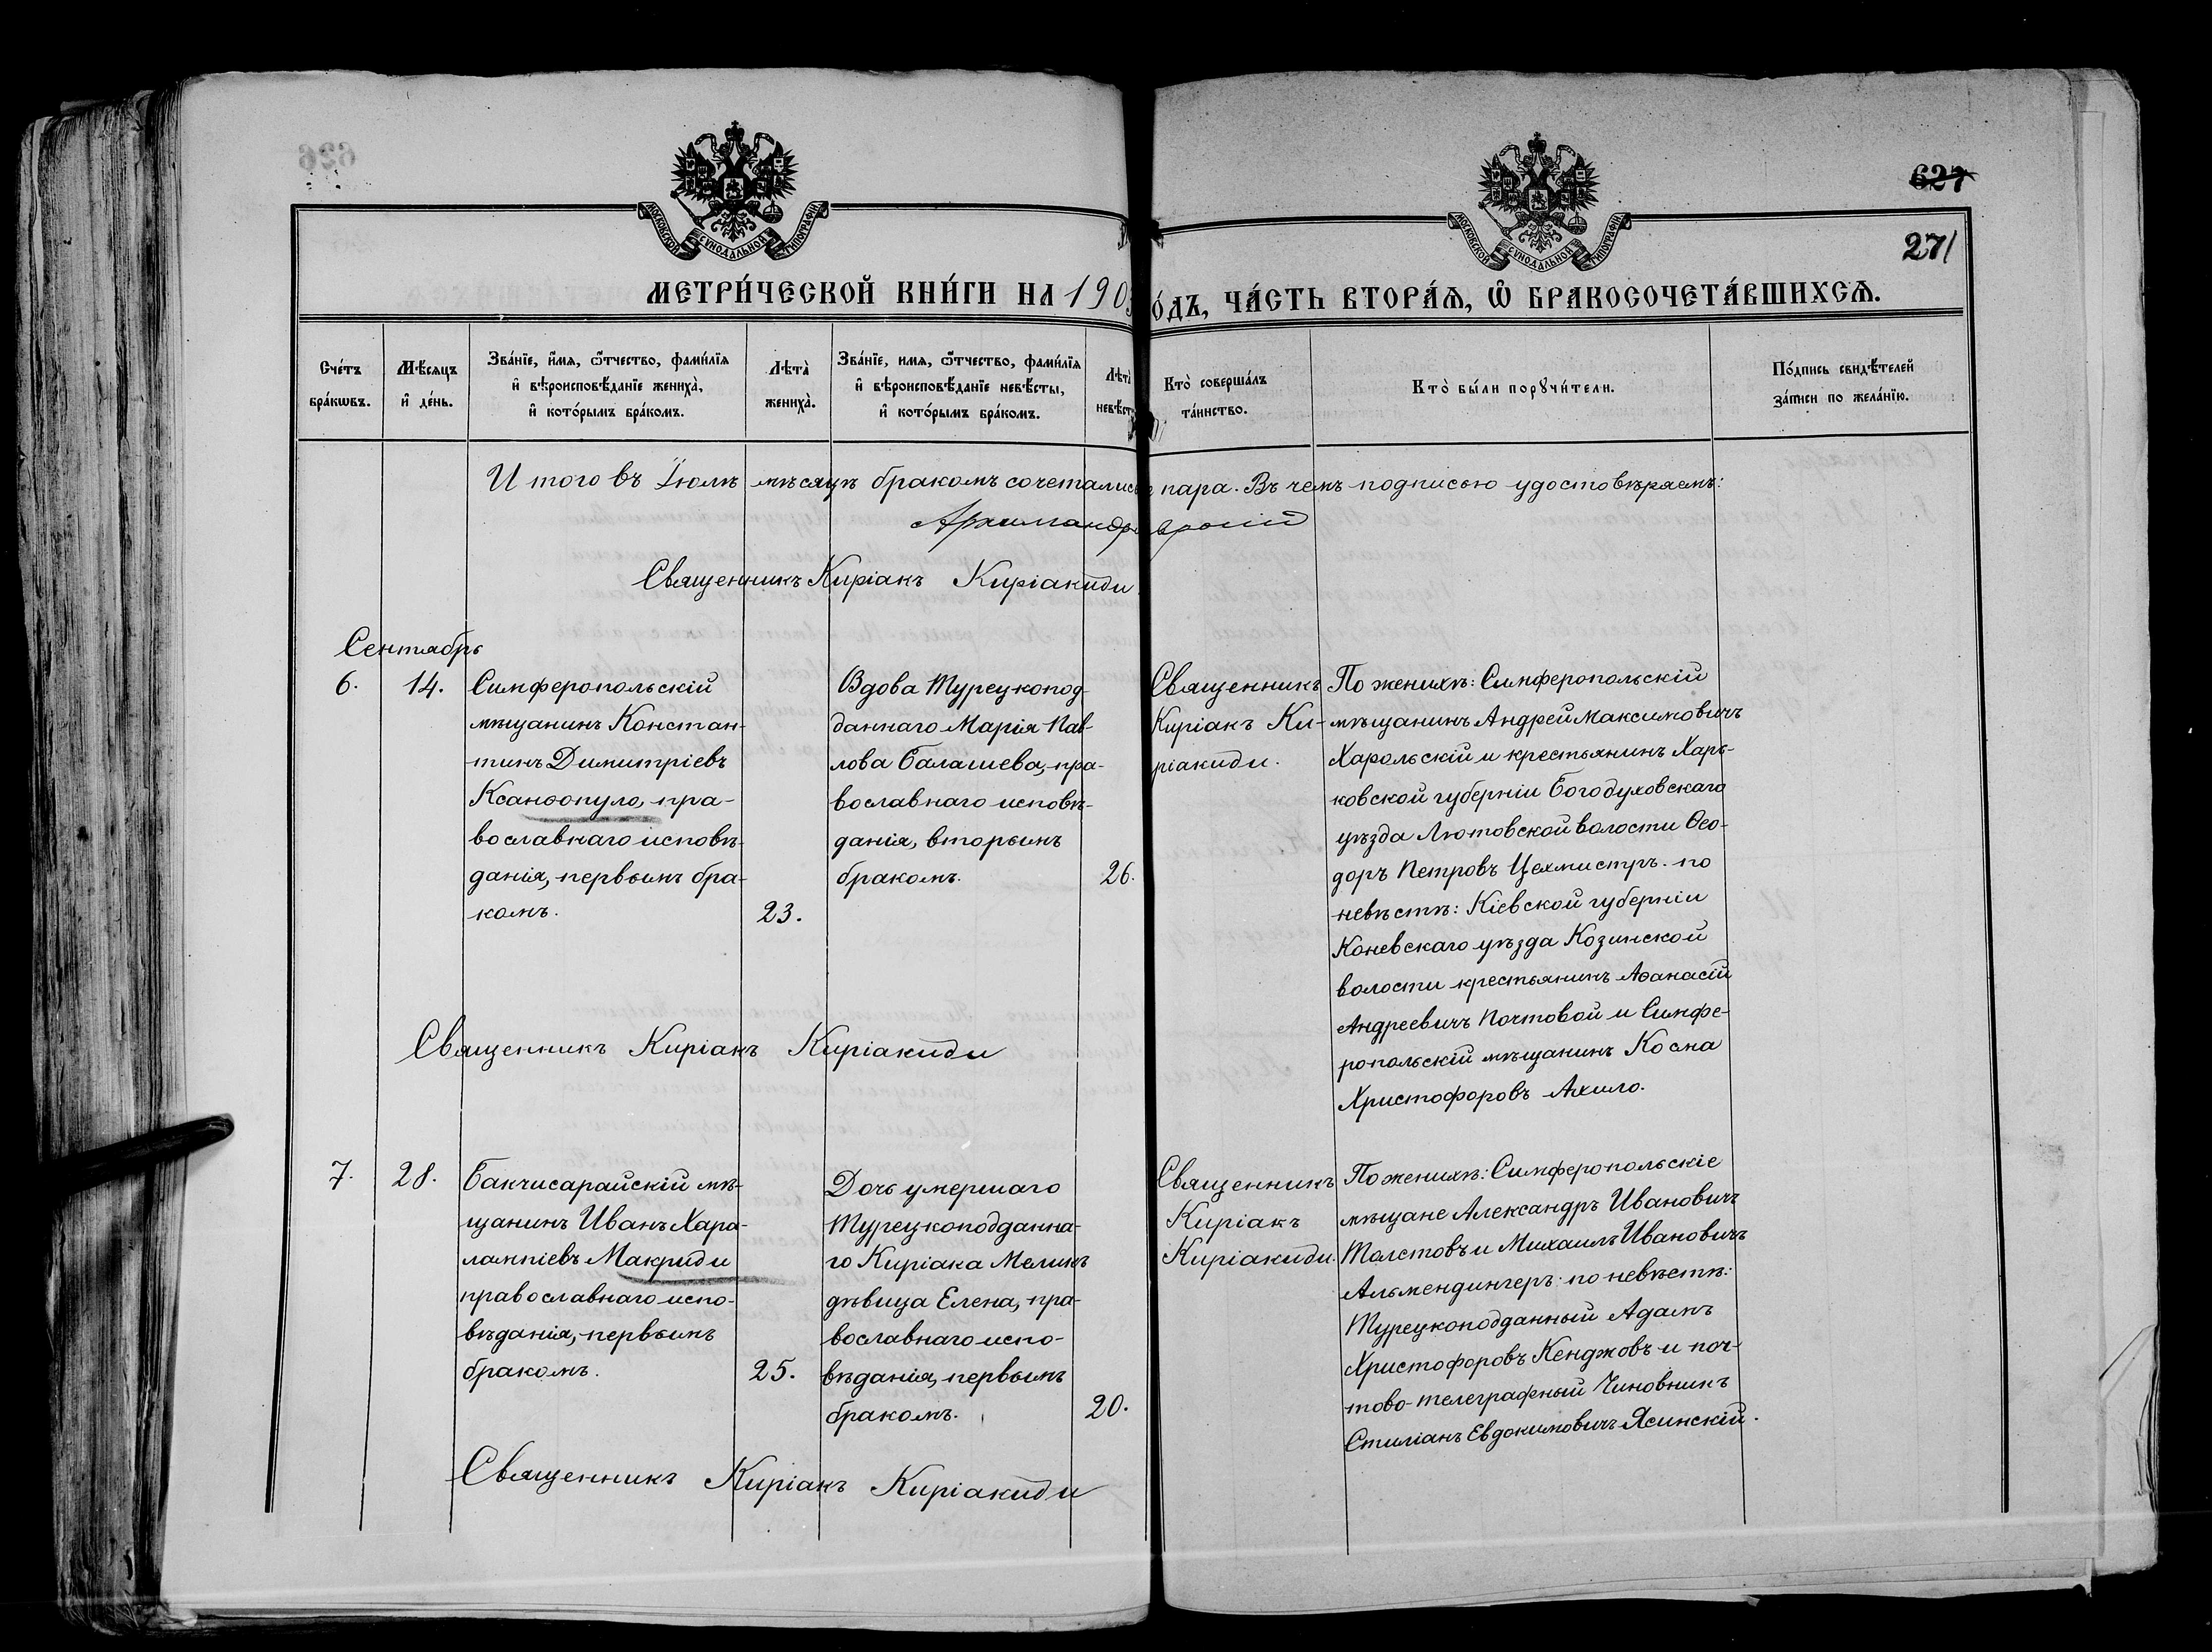 626
627
271
МОСКОВСКОЙ СѴНОДАЛЬНОЙ ТИПОГРАФІИ
МОСКОВСКОЙ СѴНОДАЛЬНОЙ ТИПОГРАФІИ
МЕТРИ́ЧЕСКОЙ КНИ́ГИ НА 190
О́ДЪ, ЧА́СТЬ ВТОРА́Ѧ, Ѽ БРАКОСОЧЕТА́ВШИХСѦ.
Сче́тъ
бра́кѡвъ.
Мѣ́сяцъ
и҆ де́нь.
Зва́нїе, и҆́мя, ѻ҆́тчество, фами́лїя
и҆ вѣроисповѣ́данїе жениха̀,
и҆ кото́рымъ бра́комъ.
Лѣта̀
жениха̀.
Зва́нїе, имя, ѻ҆́тчество, фами́лїя
и҆ вѣроисповѣ́данїе невѣ́сты,
и҆ кото́рымъ бра́комъ.
Лѣта̀
невѣст
Кто̀ соверша́лъ
та́инство.
Кто̀ бы́ли порꙋчи́тели.
По́дпись свидѣ́телей
за́писи по жела́нїю.
Итого въ Іюлѣ мѣсяцѣ бракомъ сочетались пара. Въ чемъ подписью удостовѣряемъ:
Архимандр
Священникъ Киріакъ Киріакиди
Сентябрь
6.
14.
Симферопольскій
мѣщанинъ Констан-
тинъ Димитріевъ
Ксанѳопуло, пра-
вославнаго исповѣ-
данія, первымъ бра-
комъ.
23.
Вдова Турецкопод-
даннаго Марія Пав-
лова Балашева, пра-
вославнаго исповѣ-
данія, вторымъ
бракомъ.
26.
Священникъ
Киріакъ Ки-
ріакиди.
По женихѣ: Симферопольскій
мѣщанинъ Андрей Максимовичъ
Харольскій и крестьянинъ Харь-
ковской губерніи Богодуховскаго
уѣзда Лютовской волости Ѳео-
доръ Петровъ Цехмистръ. по
невѣстѣ: Кіевской губерніи
Коневскаго уѣзда Козинской
волости крестьянинъ Аѳанасій
Андреевичъ Почтовой и Симфе-
ропольскій мѣщанинъ Косма
Христофоровъ Ахило.
Священникъ Киріакъ Киріакиди
7.
28.
Бакчисарайскій мѣ-
щанинъ Иванъ Хара-
лампіевъ Макриди
православнаго испо-
вѣданія, первымъ
бракомъ.
25.
Дочь умершаго
Турецкоподданна-
го Киріака Меликъ
дѣвица Елена, пра-
вославнаго испо-
вѣданія, первымъ
бракомъ.
20.
Священникъ
Киріакъ
Киріакиди.
По женихѣ: Симферопольскіе
мѣщане Александръ Ивановичъ
Толстовъ и Михаилъ Ивановичъ
Альмендингеръ: по невѣстѣ:
Турецкоподданный Адамъ
Христофоровъ Кенджовъ и поч-
тово-телеграфный Чиновникъ
Стиліанъ Евдокимовичъ Ясинскій.
Священникъ Киріакъ Киріакиди